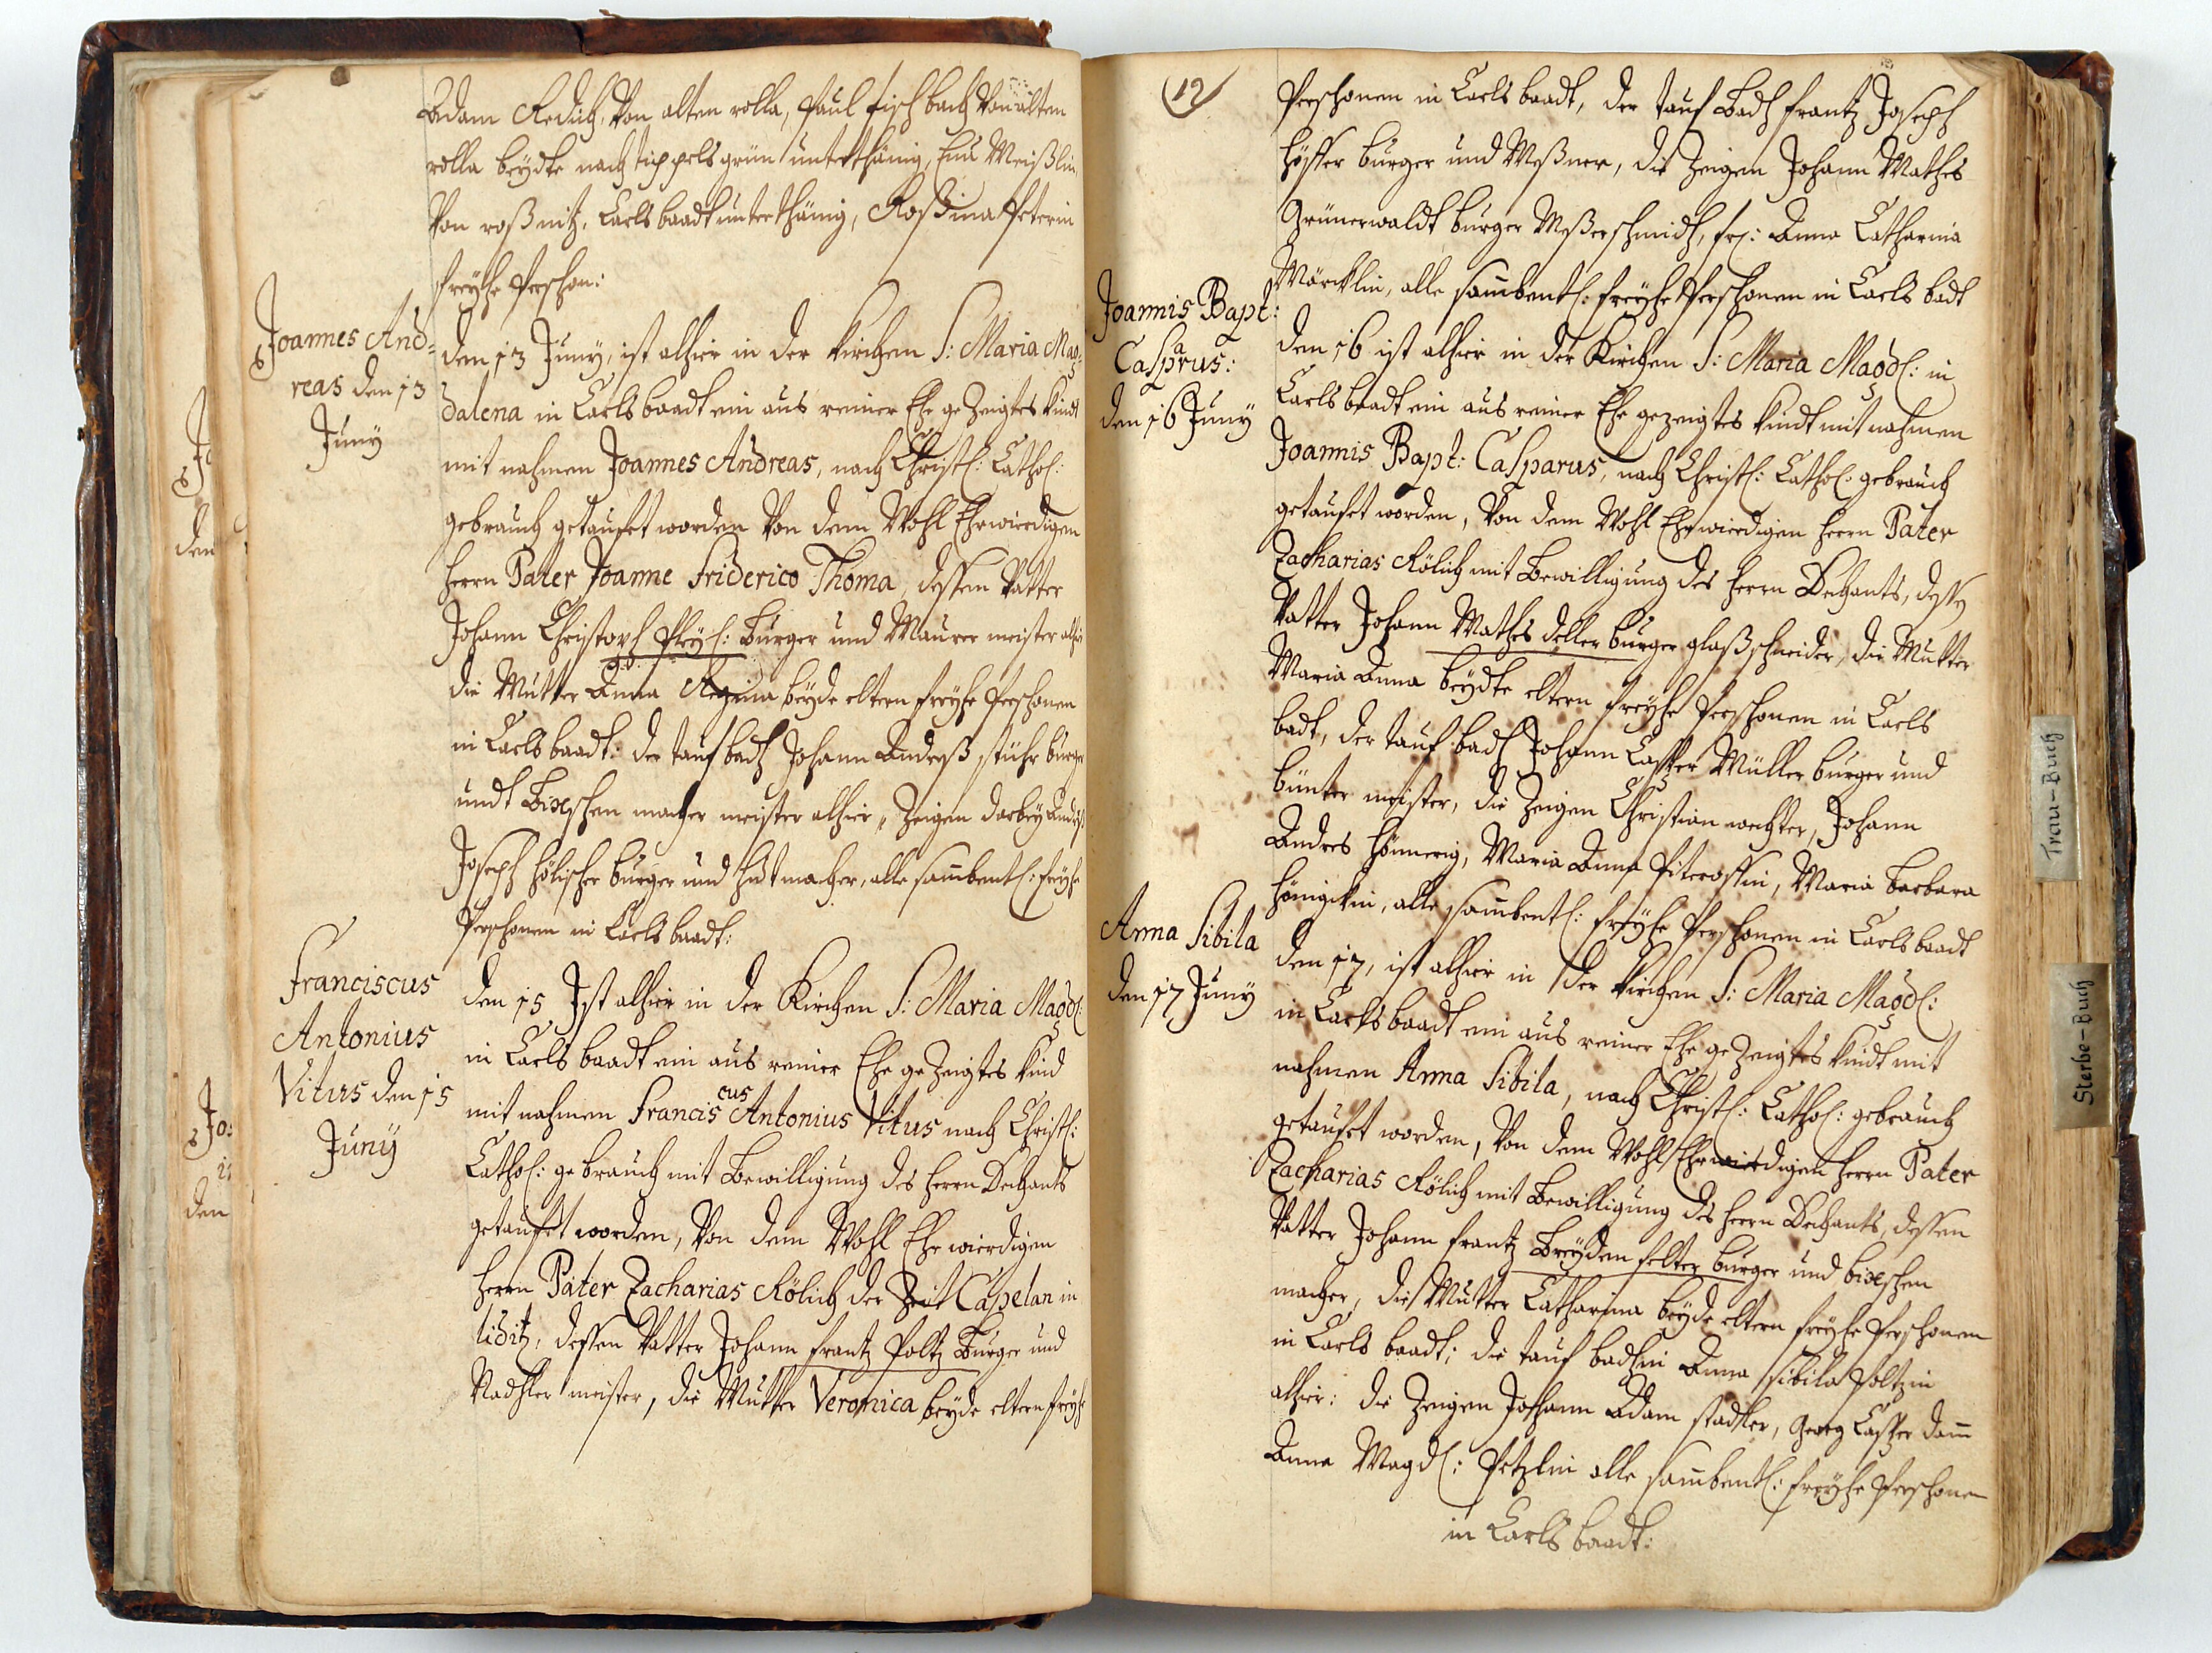 Adam Redich, Von alten rolla, Paul Fischbach Von alten
rolla beÿdte nach tippelsgrün unterthänig, Eua Meißlin
Von roßnitz, Carlsbaadt unterthänig, Rosina Peterin
freÿhe Perschon:
Joannes And=
reas den 13
Junÿ
den 13 Junÿ, ist alhier in der kirchen S: Maria Mag=
dalena in Carlsbaadt ein aus reiner Ehe geZeigtes kindt
mit nahmen Joannes Andreas, nach Christl: Cathol:
gebrauch getauft worden Von dem Wohl Ehrwierdigen
herrn Pater Joanne Friderico Thoma, dessen Vatter
Johann Christoph Pleÿl: Burger und Maurer meister alhier
die Mutter Anna Regina beÿde eltern freÿhe Perschonen
in Carlsbaadt: der tauf badh Johann Andreß stühr burger
undt Bixschen macher meister alhier, Zeigen darbeÿ Andreß
Joseph hölischer burger und hutmacher, alle sambentl: freÿhe
Perschonen in Carlsbaadt:
Franciscus
Antonius
Vitus den 15
Junÿ
den 15 Ist alhier in der Kirchen S: Maria Magdl:
in Carlsbaadt ein aus reiner Ehe geZeigtes kind
mit nahmen Franciscus Antonius Vitus nach Christl:
Cathol: gebrauch mit Bewilligung des herrn Dechants
getauft worden, Von dem Wohl Ehrwierdigen
herrn Pater Zacharias Rölich der Zeit Capelan in
liditz, dessen Vatter Johann frantz Poltz Burger und
Nadhler meister, die Mutter Veronica beÿde eltern freÿhe
12
Perschonen in Carlsbaadt, der tauf Badh frantz Joseph
hösser burger und Meßner, die Zeigen Johann Mathes
Grünerwaldt burger Meßerschmidh, fr: Anna Catharina
Märcklin, alle sambentl: freÿhe Perschonen in Carlsbadt
Joannis Bapt:
Casparus:
den 16 Junÿ
den 16 ist alhier in der Kirchen S: Maria Magdl: in
Carlsbaadt ein aus reiner Ehe gezeigtes kindt mit nahmen
Joannis Bapt: Casparus, nach Christl: Cathol: gebrauch
getauft worden, Von dem Wohl Ehrwierdigen herrn Pater
Zacharias Rölich mit Bewilligung des herrn Dechants, dessen
Vatter Johann Mathes deller burger glaßschneider, die Mutter
Maria Anna beÿdte eltern freÿhe Perschonen in Carls
badt, der tauf badh Johann Casper Müller burger und
bünter meister, die Zeigen Christian wechter, Johann
Andres hönnerig, Maria Anna Piterossin, Maria Barbara
hönigkin, alle sambentl: freÿhe Perschonen in Carlsbaadt
Anna Sibila
den 17 Junÿ
den 17, ist alhier in der kirchen S: Maria Magdl:
in Carlsbaadt ein aus reiner Ehe geZeigtes kindt mit
nahmen Anna Sibila, nach Christl: Cathol: gebrauch
getauft worden, Von dem Wohl Ehrwierdigen herrn Pater
Zacharias Rölich mit Bewilligung des herrn Dechants, dessen
Vatter Johann frantz Breÿdenfelter burger und bixschen
macher, die Mutter Catharina beÿde eltern freÿhe Perschonen
in Carlsbaadt; die tauf badhin Anna Sibila Poltzin
alhier: die Zeigen Johann Adam stadler, Georg Casper Damm
Anna Magdl: Petzlin alle sambentl: freÿhe Perschonen
in Carlsbaadt:
Trau-Buch
Sterbe-Buch